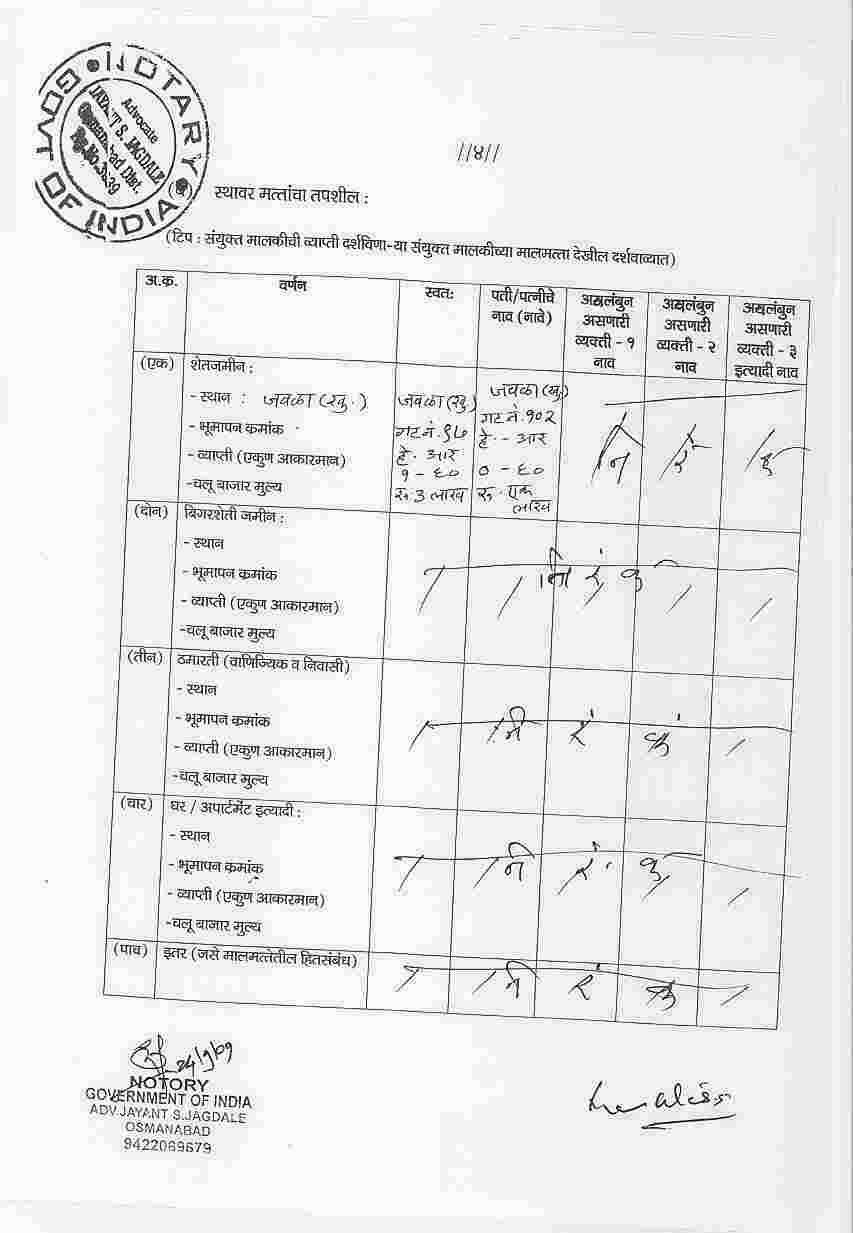 NOTARY
GOVT. OF INDIA
Advocate
JAYANT S. JAGDALE
Osmanabad Dist.
Rg.No.3639
//४//
स्थावर मत्तांचा तपशील :
(टिप : संयुक्त मालकीची व्याप्ती दर्शविणा-या संयुक्त मालकीच्या मालमत्ता देखील दर्शवाव्यात)
अ.क. वर्णन स्वतः पती/पत्नीचे नाव (नावे) अवलंबुन असणारी व्यक्ती - १ नाव अवलंबुन असणारी व्यक्ती - २ नाव अवलंबुन असणारी व्यक्ती - ३ इत्यादी नाव
(एक) शेतजमीन :
- स्थान : जवळा (खु.) जवळा (खु.) जवळा (खु.)
- भूमापन क्रमांक गट नं. ९७ गट नं. १०२
- व्याप्ती (एकुण आकारमान) हे. आर १ - ६० हे. - आर ० - ६० नि रं
-चलू बाजार मुल्य रु ३ लाख रु. एक लाख
(दोन) बिगरशेती जमीन :
- स्थान
- भूमापन क्रमांक नि रं क
- व्याप्ती (एकुण आकारमान)
-चलू बाजार मुल्य
(तीन) ठमारती (वाणिज्यिक व निवासी)
- स्थान
- भूमापन क्रमांक नि रं कं
- व्याप्ती (एकुण आकारमान)
-चलू बाजार मुल्य
(चार) घर / अपार्टमेंट इत्यादी :
- स्थान
- भूमापन क्रमांक नि रं क
- व्याप्ती (एकुण आकारमान)
-चलू बाजार मुल्य
(पाच) इतर (जसे मालमत्तेतील हितसंबंध) नि रं क
24/9/09
NOTORY
GOVERNMENT OF INDIA
ADV.JAYANT S.JAGDALE
OSMANABAD
9422069679